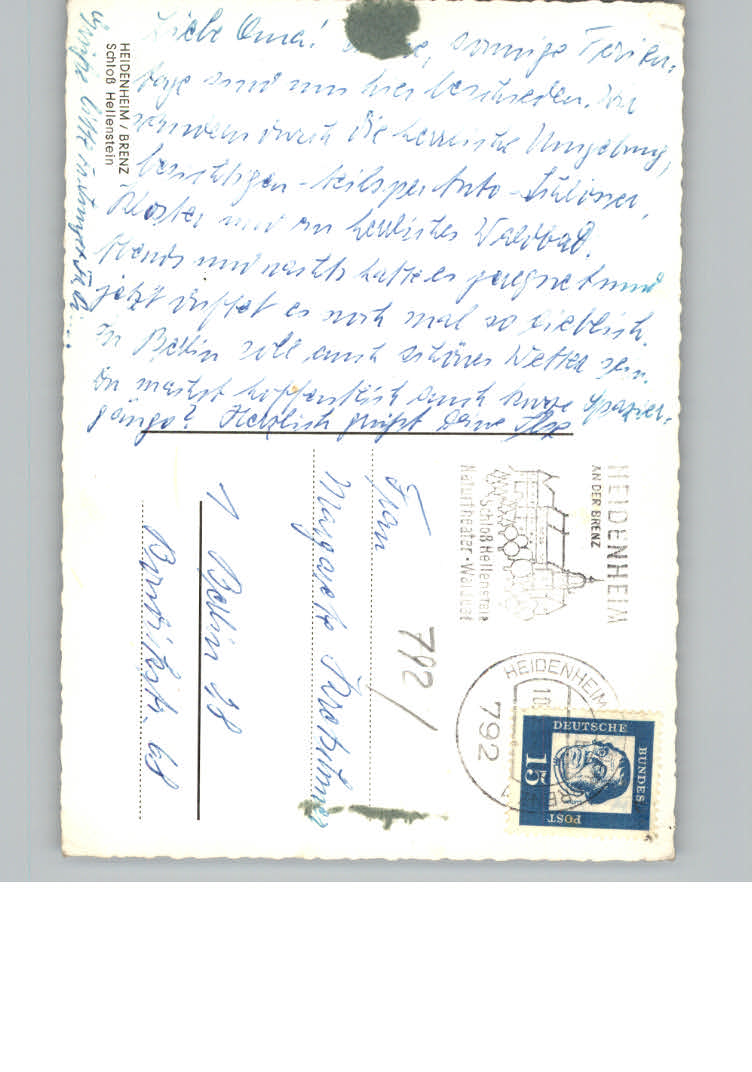 Liebe Oma! sonnige Ferien-
tage sind uns hier beschieden. Wir
wandern durch die herrliche Umgebung,
besichtigen - teils per Auto - Schlösser,
Kloster und ein herrliches Waldbad.
Abends und nachts hatte es geregnet und
jetzt duftet es noch mal so lieblich.
In Berlin soll auch schönes Wetter sein.
Du machst hoffentlich auch kurze Spazier-
gänge? Herzlich grüßt Deine
bitte
HEIDENHEIM / BRENZ
Schloß Hellenstein
HEIDENHEIM
AN DER BRENZ
Schloß Hellenstein
Naturtheater · Waldbad
HEIDENHEIM
792
DEUTSCHE
BUNDES
POST
15
792/
Frau
1 Berlin